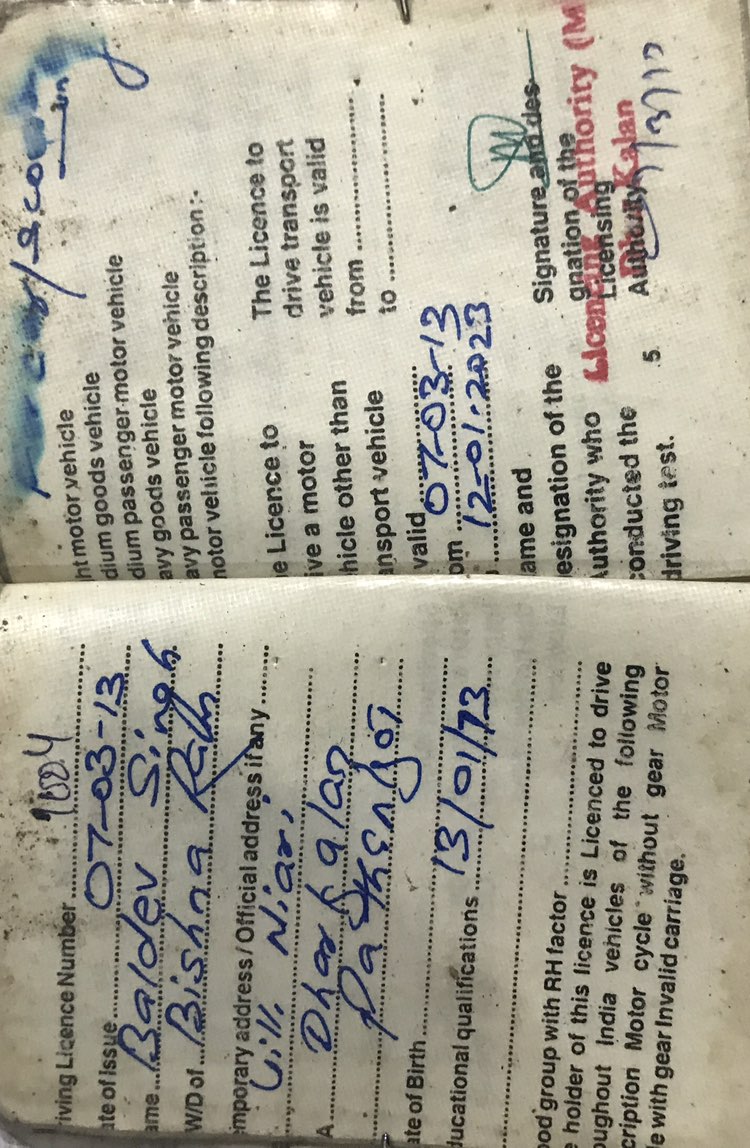 iving Licence Number ........ 1004
ate of Issue ........ 07-03-13
ame ... Baldev Singh
W/D of ... Bishna Ram
mporary address / Official address if any ........
Vill. Niari
Dhar Kalan
A ........
Pathankot
ate of Birth ........ 13/01/73
ducational qualifications ........
ood group with RH factor ........
holder of this licence is Licenced to drive
oughout India vehicles of the following
cription Motor cycle without gear Motor
le with gear Invalid carriage.
car/scooty
ht motor vehicle
dium goods vehicle
dium passenger motor vehicle
avy goods vehicle
avy passenger motor vehicle
notor vehicle following description :-
e Licence to
ive a motor
hicle other than
ansport vehicle
valid ........
om ........ 07-03-13
........ 12-01-2023
The Licence to
drive transport
vehicle is valid
from ........
to ........
ame and
esignation of the
uthority who
conducted the
driving test.
Signature and des-
gnation of the
Licensing
Authority
Licensing Authority (M
Dhar Kalan
5.